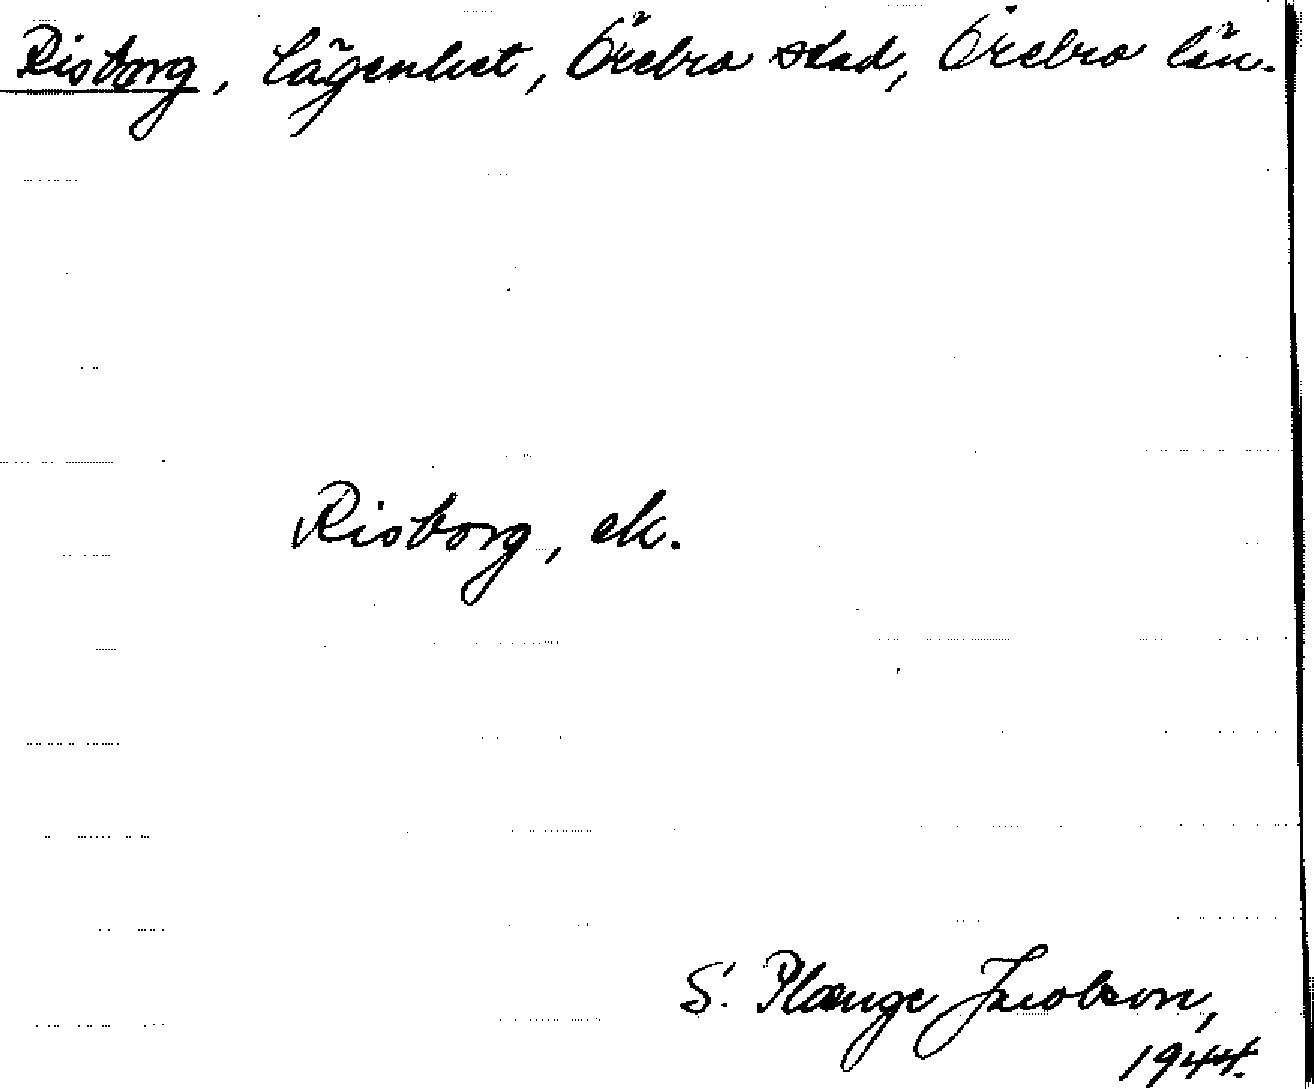 Risborg, lägenhet, Örebro stad, Örebro län.
Risborg, ek.
S. Plænge Jacobson,
1944.